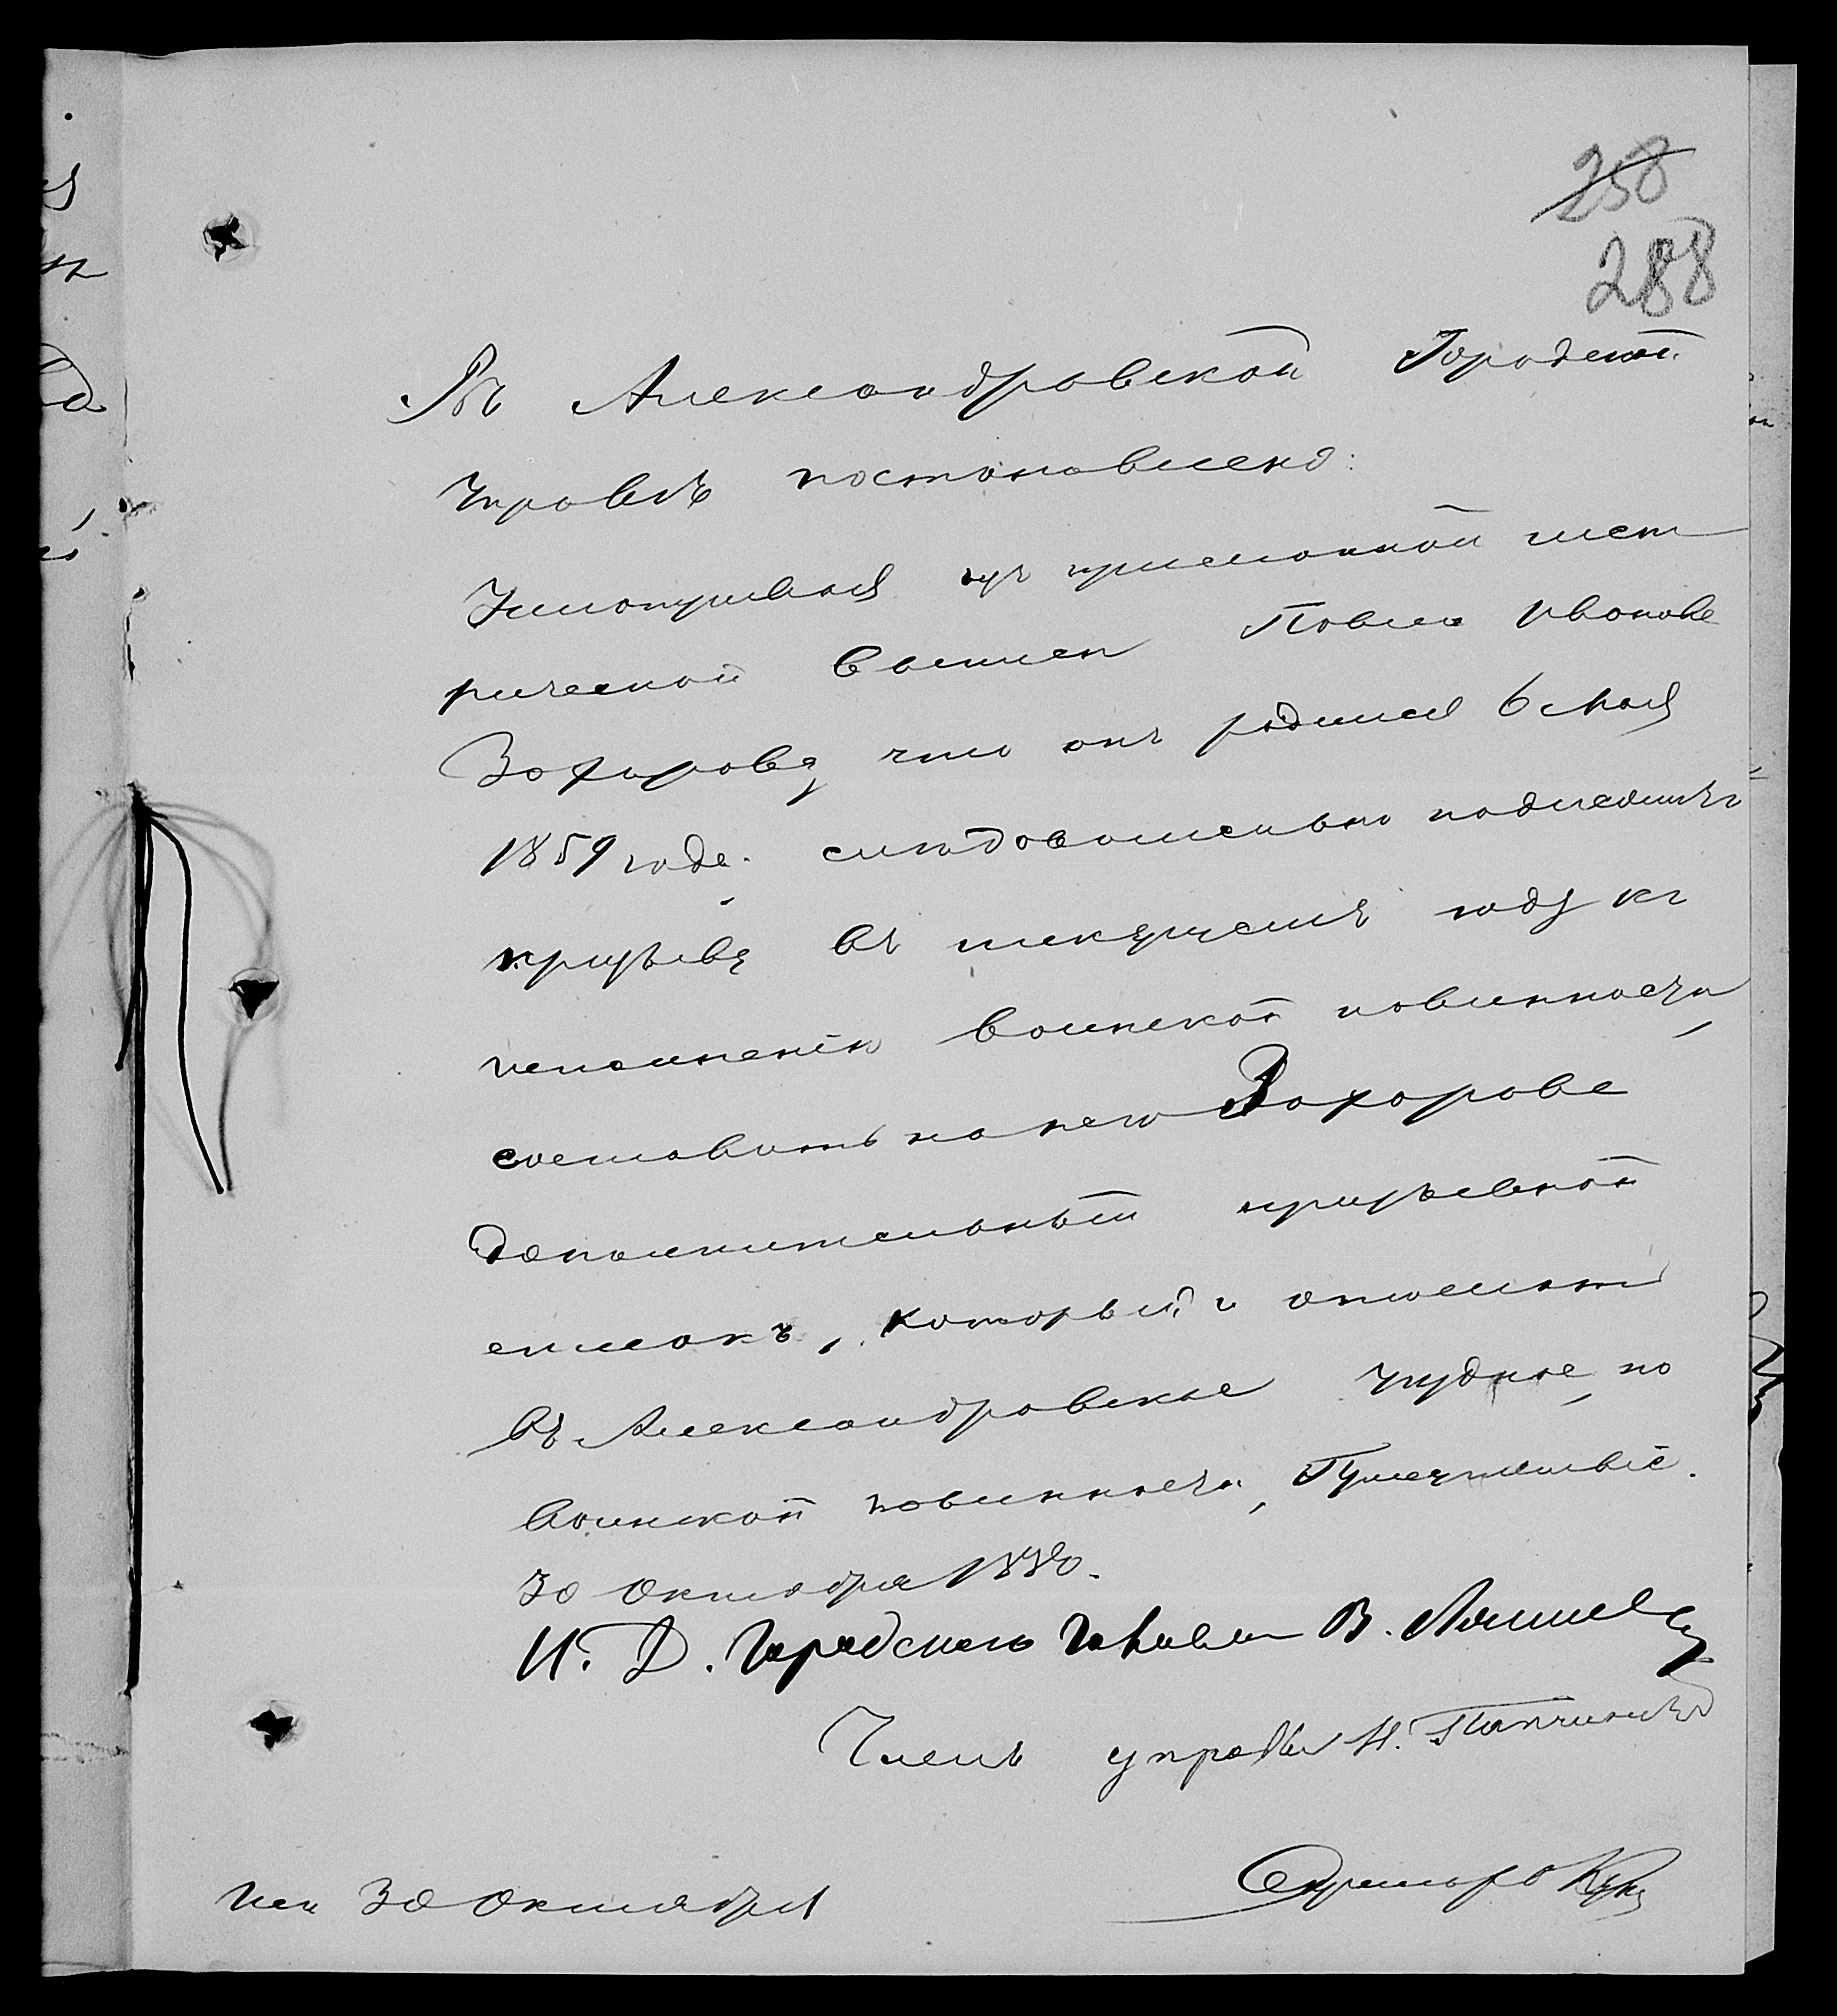 258
288
Въ Александровской Городской
Управѣ постановлено:
Усматривая изъ приложенной мет
рической выписи Павла Иванова
Захарова, что онъ родился 6 Мая
1859 года. следовательно подлежитъ
призыву въ текущемъ году къ
исполненію воинской повинности,
составить на него Захарова
дополнительный призывной
списокъ, который и отослать
въ Александровское уѣздное, по
воинской повинности, Присутствіе.
30 Октября 1880.
И. Д. Городского Головы В.
Членъ управы Н.
Секретарь
Исп 30 Октября